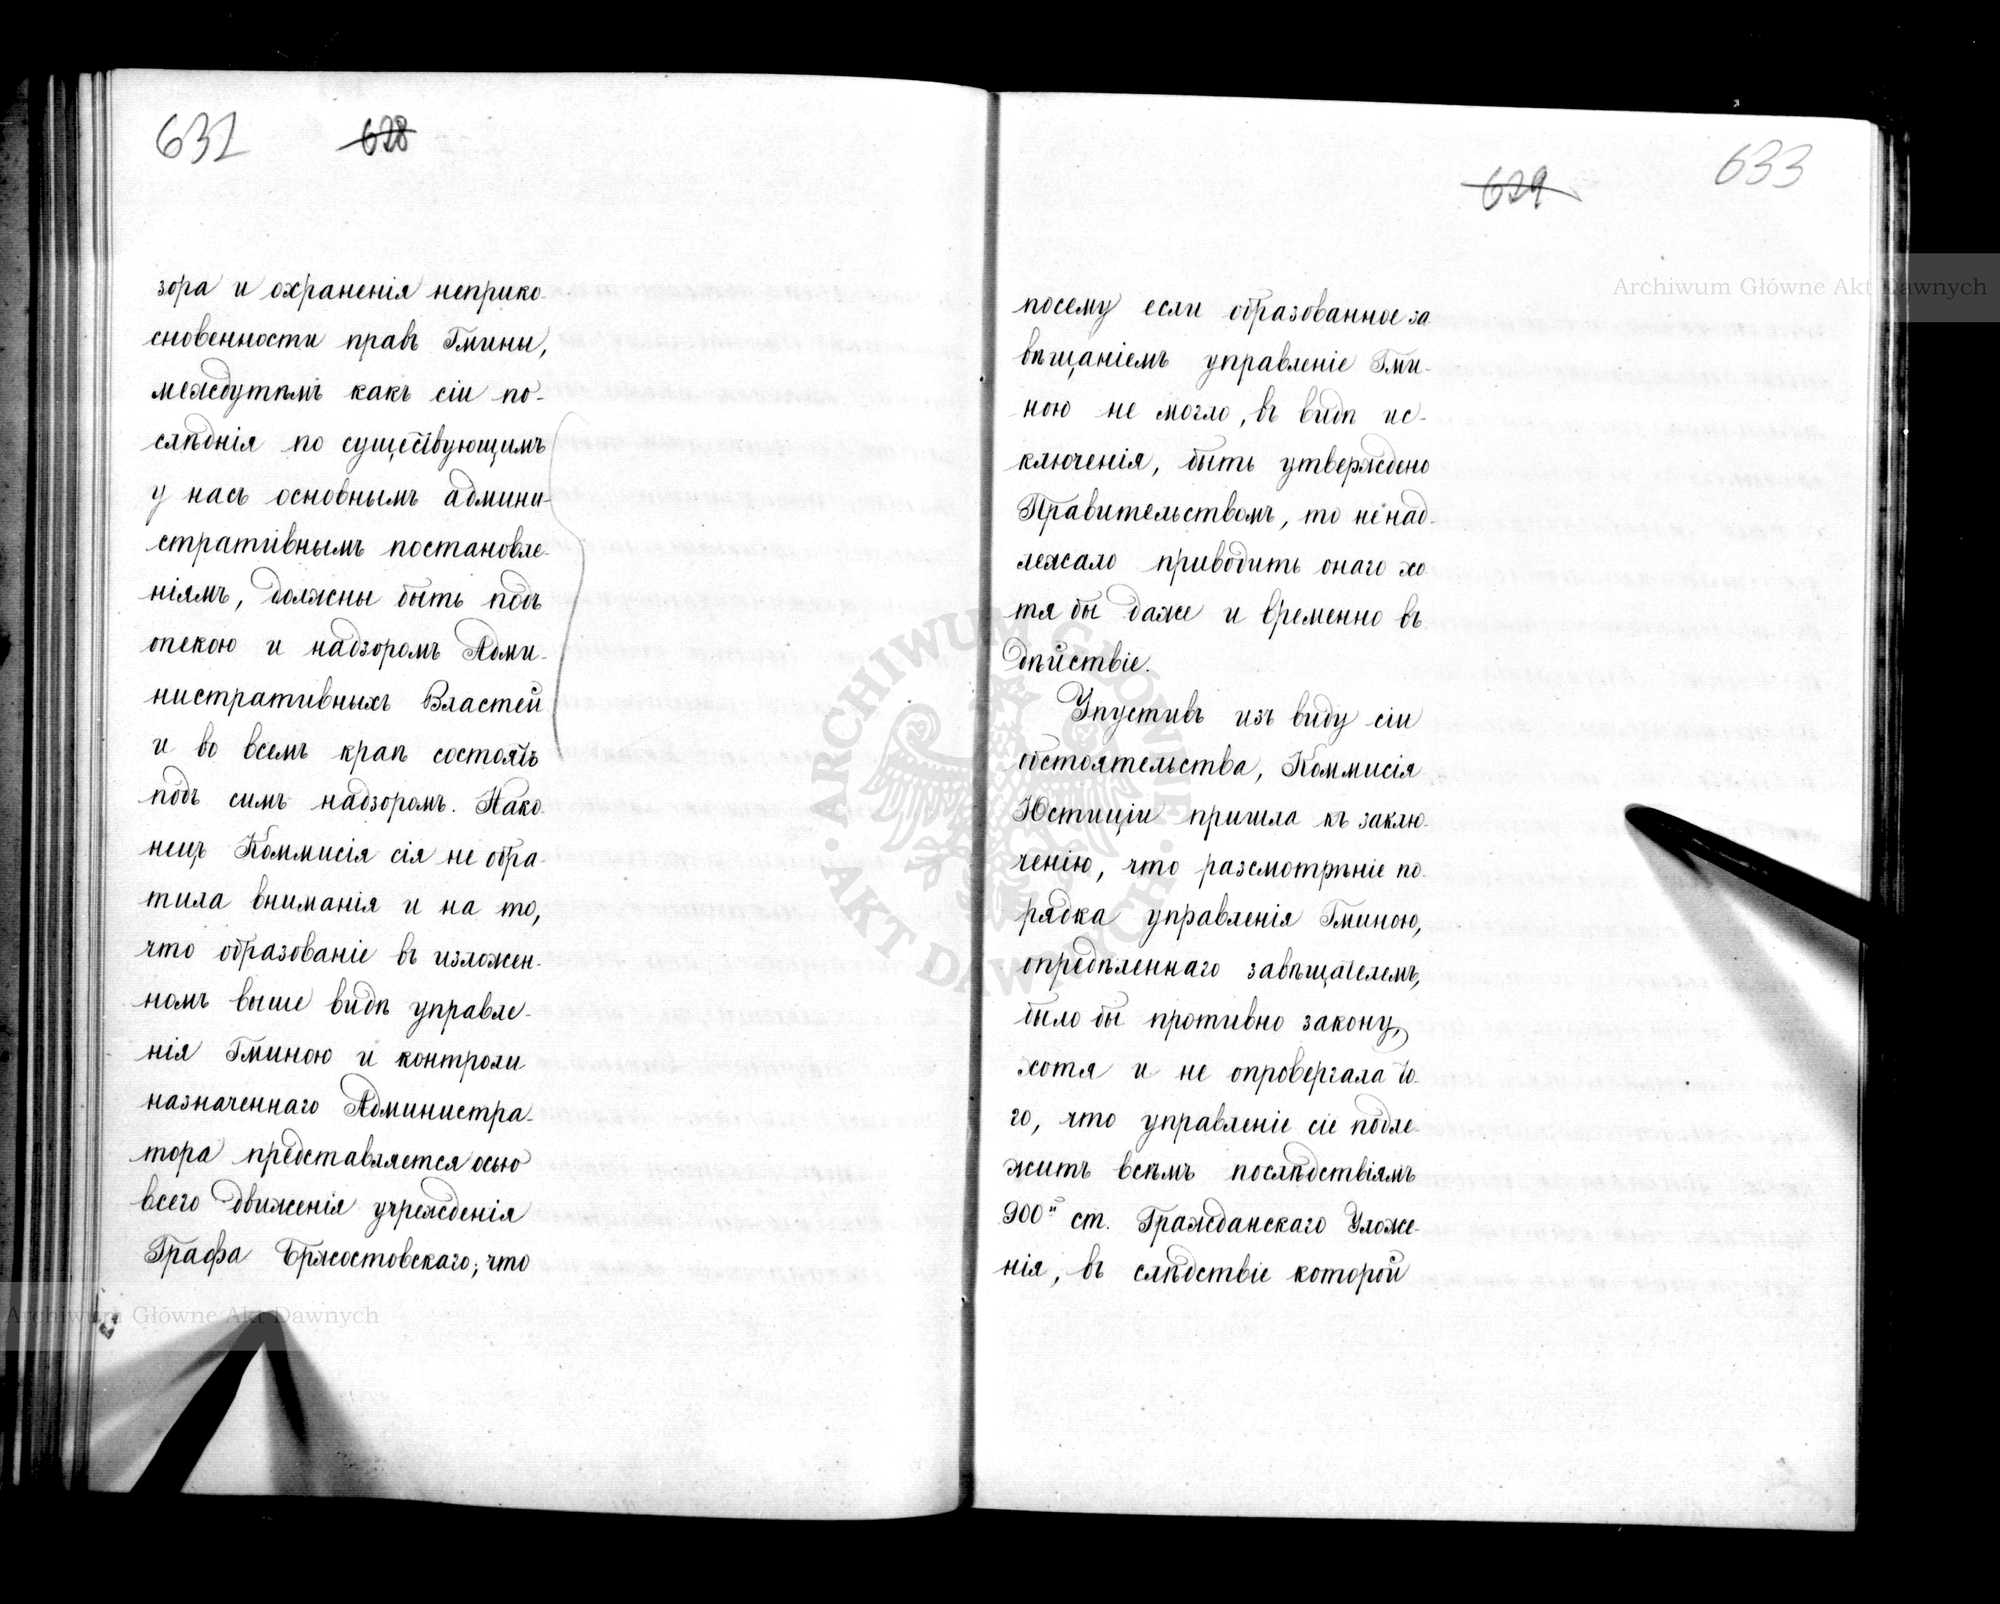 632 628
зора и охраненія неприко-
сновенности правъ Гмины,
междутѣмъ какъ сіи по-
слѣднія по существующимъ
у насъ основнымъ админи-
стративнымъ постановле-
ніямъ, должны быть подъ
опекою и надзоромъ Адми-
нистративныхъ Властей
и во всемъ краѣ состоятъ
подъ симъ надзоромъ. Нако-
нецъ Коммисія сія не обра-
тила вниманія и на то,
что образованіе въ изложен-
номъ выше видѣ управле-
нія Гминою и контроли
назначеннаго Администра-
тора представляется осью
всего движенія учрежденія
Графа Бржостовскаго; что
629 633
посему если образованное за
вѣщаніемъ управленіе Гми-
ною не могло, въ видѣ ис-
ключенія, быть утверждено
Правительствомъ, то не над-
лежало приводить онаго хо
тя бы даже и временно въ
дѣйствіе.
Упустивъ изъ виду сіи
обстоятельства, Коммисія
Юстиціи пришла къ заклю-
ченію, что разсмотрѣніе по-
рядка управленія Гминою,
опредѣленнаго завѣщателемъ,
было бы противно закону,
хотя и не опровергала то-
го, что управленіе сіе подле-
житъ всѣмъ послѣдствіямъ
900й ст. Гражданскаго Уложе-
нія, въ слѣдствіе которой
Archiwum Główne Akt Dawnych
ARCHIWUM GŁÓWNE · AKT DAWNYCH ·
Archiwum Główne Akt Dawnych